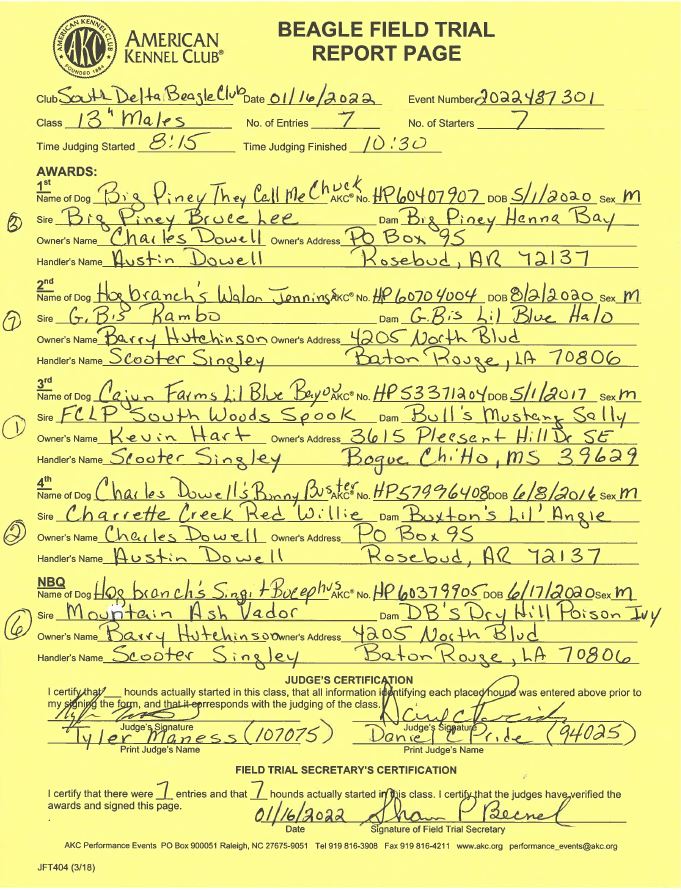 AMERICAN KENNEL CLUB
AKC
FOUNDED 1884
AMERICAN
KENNEL CLUB®
BEAGLE FIELD TRIAL
REPORT PAGE
Club South Delta Beagle Club Date 01/16/2022 Event Number 2022487301
Class 13" Males No. of Entries 7 No. of Starters 7
Time Judging Started 8:15 Time Judging Finished 10:30
AWARDS:
1st
Name of Dog Big Piney They Call Me Chuck AKC® No. HP60407907 DOB 5/1/2020 Sex M
3 Sire Big Piney Bruce Lee Dam Big Piney Henna Bay
Owner's Name Charles Dowell Owner's Address PO Box 95
Handler's Name Austin Dowell Rosebud, AR 72137
2nd
Name of Dog Hogbranch's Walon Jennings AKC® No. HP60704004 DOB 8/2/2020 Sex M
7 Sire G.B's Rambo Dam G.B's Lil Blue Halo
Owner's Name Barry Hutchinson Owner's Address 4205 North Blvd
Handler's Name Scooter Singley Baton Rouge, LA 70806
3rd
Name of Dog Cajun Farms Lil Blue Bayou AKC® No. HP53371204 DOB 5/1/2017 Sex M
1 Sire FCLP South Woods Spook Dam Bull's Mustang Sally
Owner's Name Kevin Hart Owner's Address 3615 Pleesant Hill Dr SE
Handler's Name Scooter Singley Bogue Chitto, MS 39629
4th
Name of Dog Charles Dowell's Bunny Buster AKC® No. HP57996408 DOB 6/8/2016 Sex M
2 Sire Charrette Creek Red Willie Dam Buxton's Lil' Angie
Owner's Name Charles Dowell Owner's Address PO Box 95
Handler's Name Austin Dowell Rosebud, AR 72137
NBQ
Name of Dog Hogbranch's Singit Bucephus AKC® No. HP60379905 DOB 6/17/2020 Sex M
6 Sire Mountain Ash Vador Dam DB's Dry Hill Poison Ivy
Owner's Name Barry Hutchinson Owner's Address 4205 North Blvd
Handler's Name Scooter Singley Baton Rouge, LA 70806
JUDGE'S CERTIFICATION
I certify that hounds actually started in this class, that all information identifying each placed hound was entered above prior to
my signing the form, and that it corresponds with the judging of the class.
Judge's Signature Judge's Signature
Tyler Maness (107075) Daniel C Pride (94025)
Print Judge's Name Print Judge's Name
FIELD TRIAL SECRETARY'S CERTIFICATION
I certify that there were 7 entries and that 7 hounds actually started in this class. I certify that the judges have verified the
awards and signed this page.
01/16/2022 Shawn P Becnel
Date Signature of Field Trial Secretary
AKC Performance Events PO Box 900051 Raleigh, NC 27675-9051 Tel 919 816-3908 Fax 919 816-4211 www.akc.org performance_events@akc.org
JFT404 (3/18)